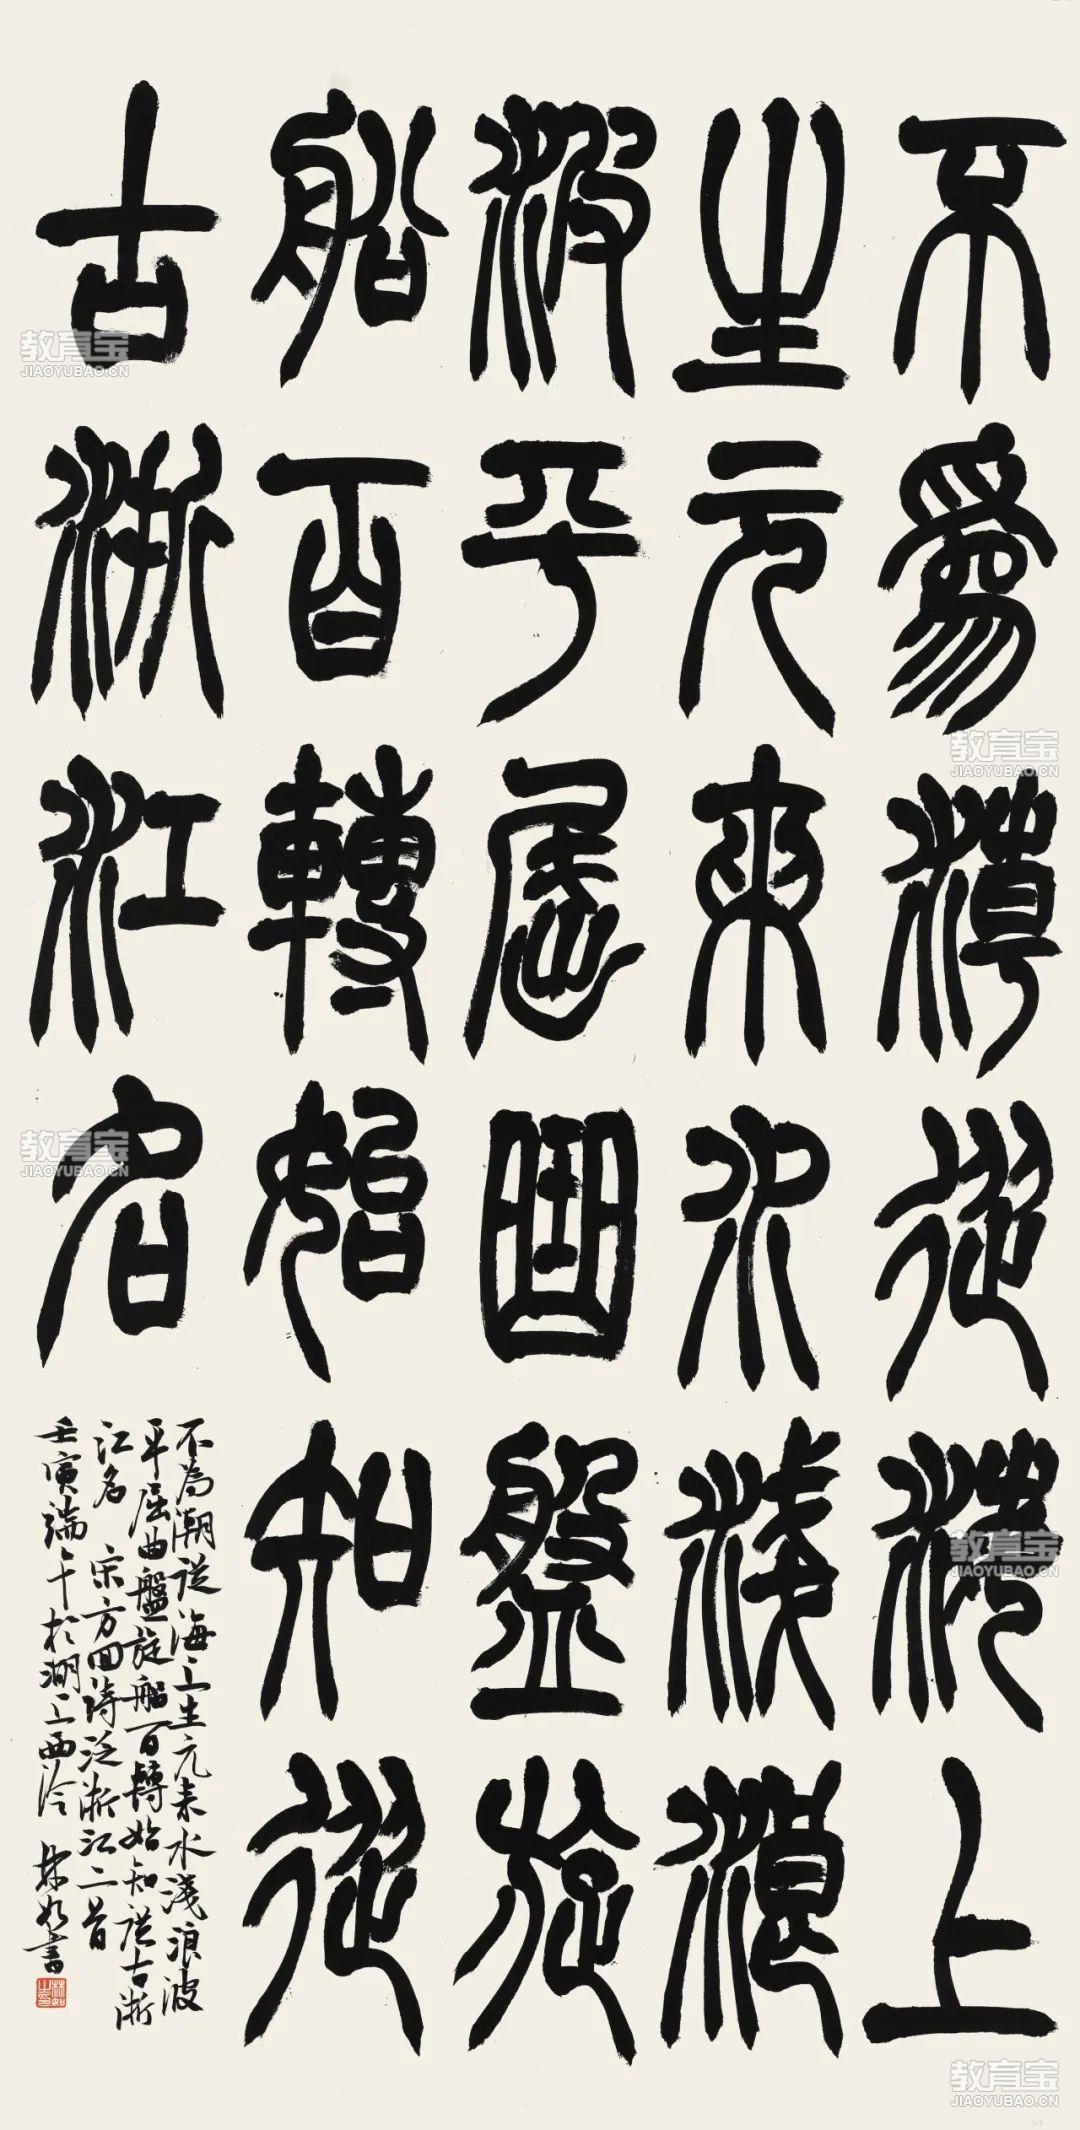 不為潮從海上
生元來水淺浪
波平屈曲盤旋
船百轉始知從
古浙江名
不為潮從海上生元來水淺浪波
平屈曲盤旋船百轉始知從古浙
江名 宋方回詩泛浙江二首
壬寅端午於湖上西泠 林如書
教育宝
JIAOYUBAO.CN
教育宝
JIAOYUBAO.CN
教育宝
JIAOYUBAO.CN
教育宝
JIAOYUBAO.CN
教育宝
JIAOYUBAO.CN